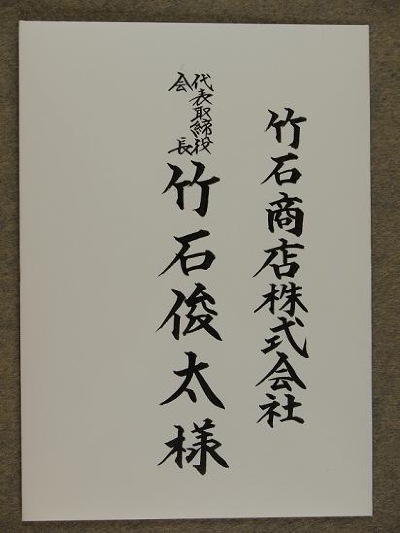 竹石商店株式会社
代表取締役
会長
竹石俊太様